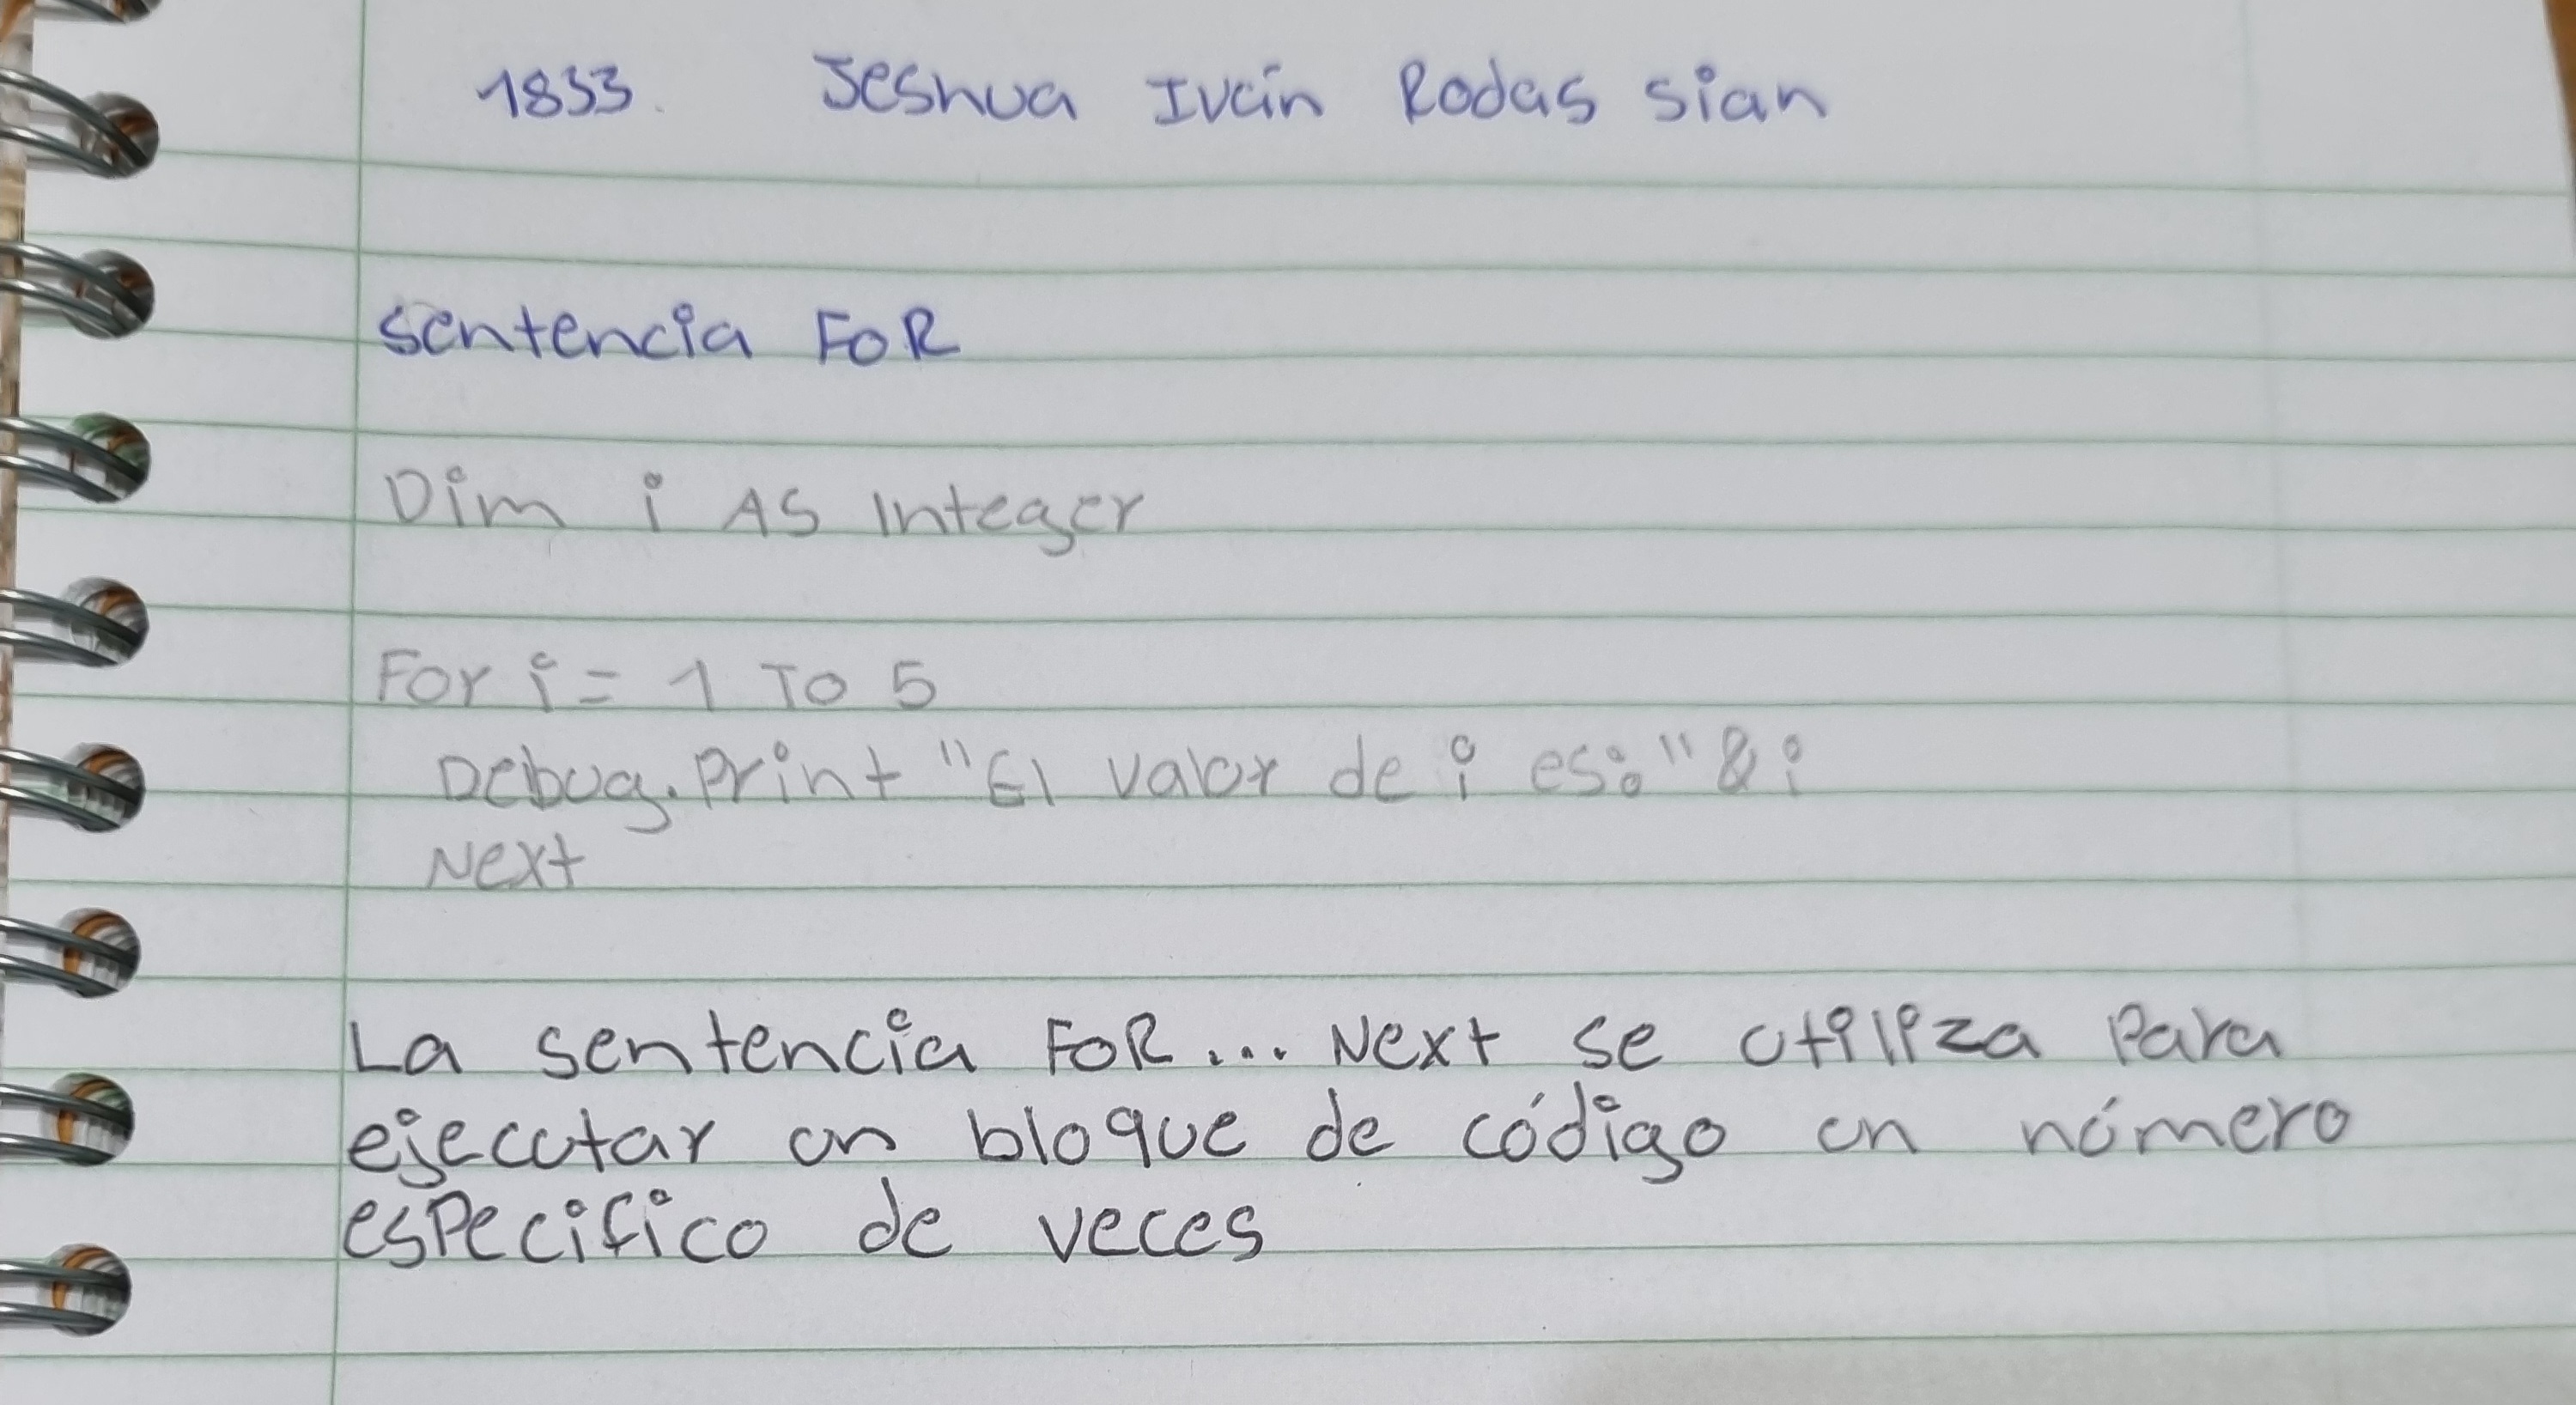 1833. Jeshua Iván Rodas Sian
Sentencia FOR
Dim i As Integer
For i = 1 To 5
Debug.Print "El valor de i es:" & i
Next
La sentencia FOR... Next se utiliza para
ejecutar un bloque de código un número
especifico de veces